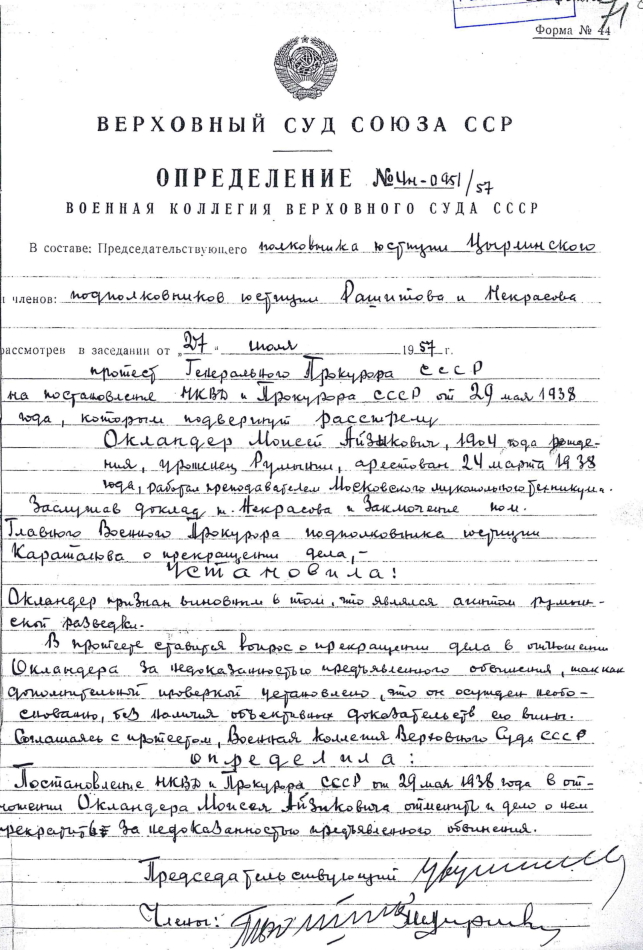 71
Форма № 44
ВЕРХОВНЫЙ СУД СОЮЗА ССР
ОПРЕДЕЛЕНИЕ №4н-0951/57
ВОЕННАЯ КОЛЛЕГИЯ ВЕРХОВНОГО СУДА СССР
В составе: Председательствующего полковника юстиции Цырлинского
и членов: подполковников юстиции Рашитова и Некрасова
рассмотрев в заседании от „27" июля 1957 г.
протест Генерального Прокурора СССР
на постановление НКВД и Прокурора СССР от 29 мая 1938
года, которым подвергнут расстрелу
Окландер Моисей Айзикович, 1904 года рожде-
ния, уроженец Румынии, арестован 24 марта 1938
года, работал преподавателем Московского мукомольного техникума.
Заслушав доклад т. Некрасова и заключение пом.
Главного Военного Прокурора подполковника юстиции
о прекращении дела,-
Установила:
Окландер признан виновным в том, что являлся агентом румын-
ской разведки.
В протесте ставится вопрос о прекращении дела в отношении
Окландера за недоказанностью предъявленного обвинения, так как
дополнительной проверкой установлено, что он осужден необо-
снованно, без наличия объективных доказательств его вины.
Соглашаясь с протестом, Военная коллегия Верховного Суда СССР
определила:
Постановление НКВД и Прокурора СССР от 29 мая 1938 года в от-
ношении Окландера Моисея Айзиковича отменить и дело о нем
прекратить за недоказанностью предъявленного обвинения.
Председательствующий
Члены: